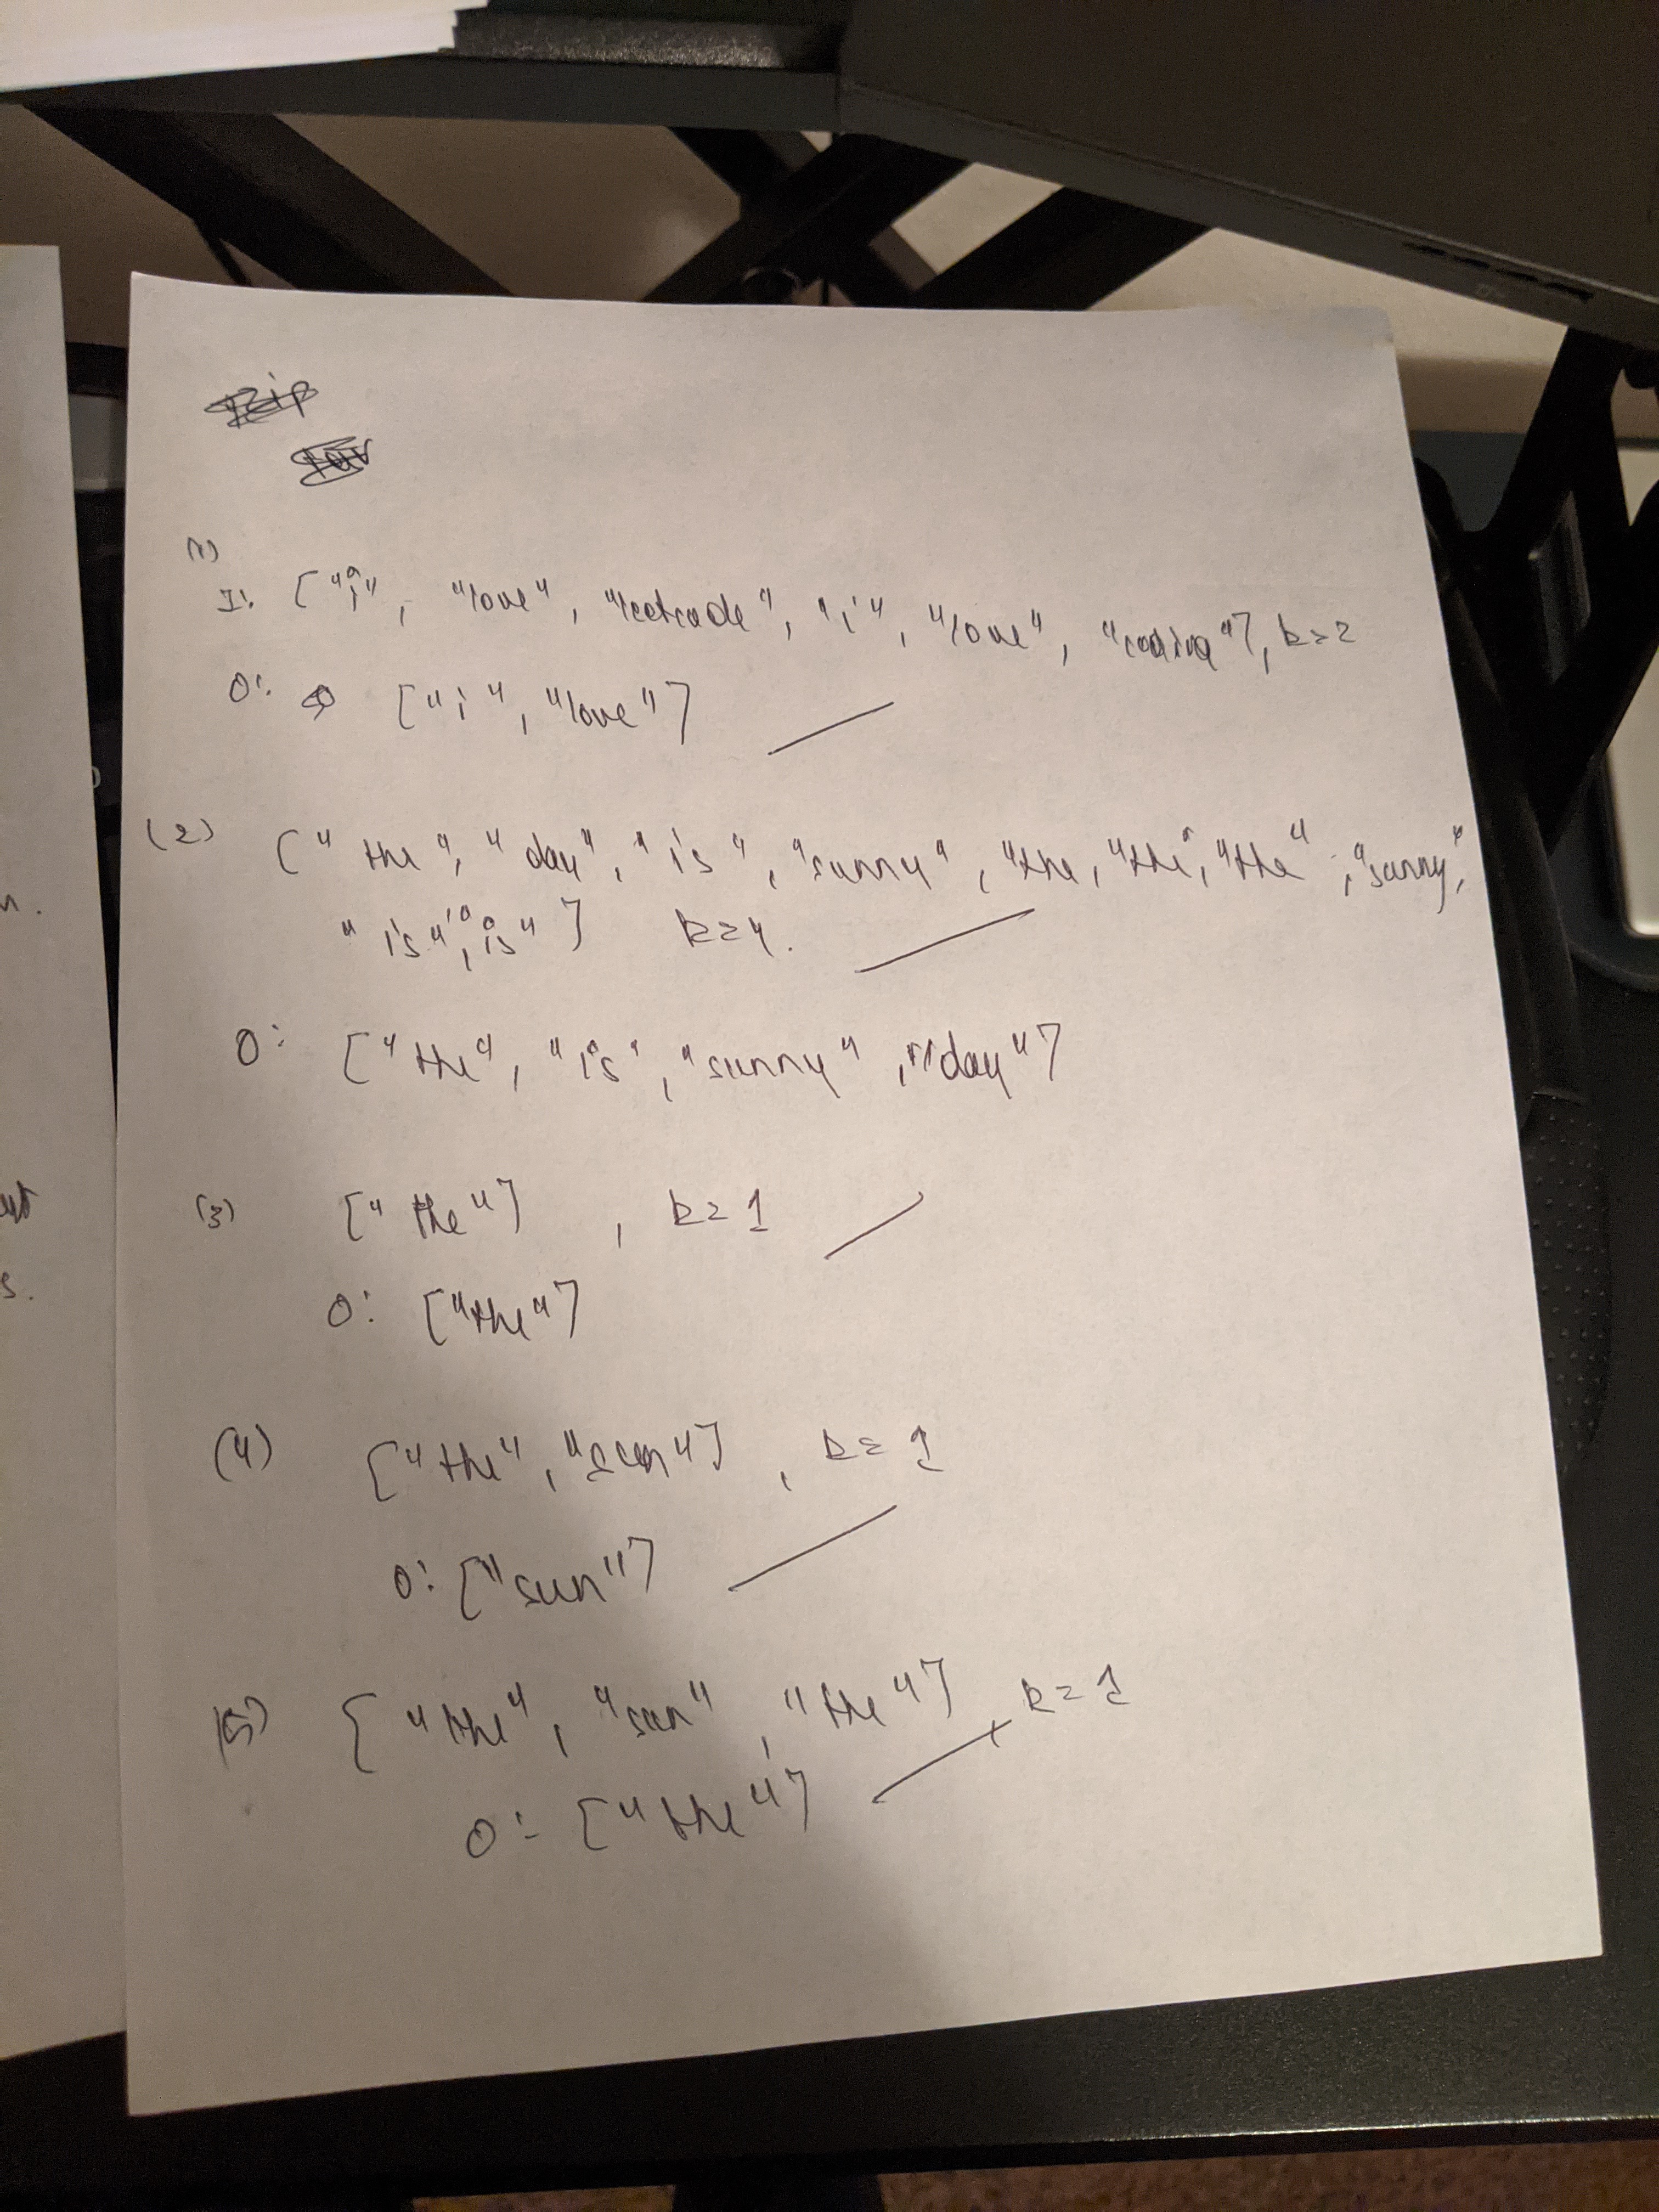 (1)
I: ["i", "love", "leetcode", "i", "love", "coding"], k=2
O: ["i", "love"]
(2) ["the", "day", "is", "sunny", "the, "the", "the", "sunny",
"is", "is"] k=4.
O: ["the", "is", "sunny", "day"]
(3) ["the"], k=1
O: ["the"]
(4) ["the", "sun"], k=1
O: ["sun"]
(5) ["the", "sun", "the"], k=1
O: ["the"]
n.
s.